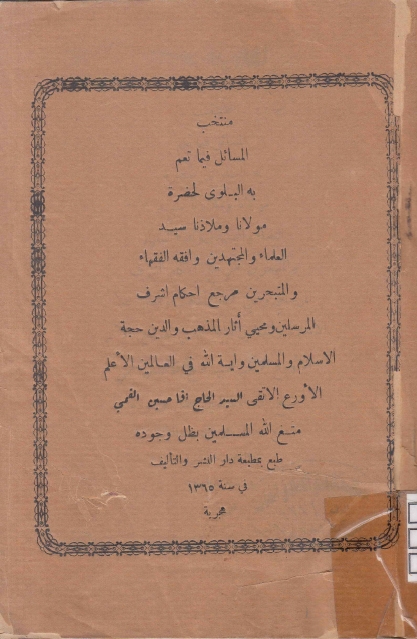 منتخب
المسائل فيما تعم
به البلوى لحضرة
مولانا وملاذنا سيد
العلماء والمجتهدين وافقه الفقهاء
والمتبحرين مرجع احكام اشرف
المرسلين ومحيي آثار المذهب والدين حجة
الاسلام والمسلمين واية الله في العالمين الأعلم
الأورع الاتقى السيد الحاج اقا حسين القمي
متع الله المسلمين بظل وجوده
طبع بمطبعة دار النشر والتأليف
في سنة ١٣٦٥
هجرية